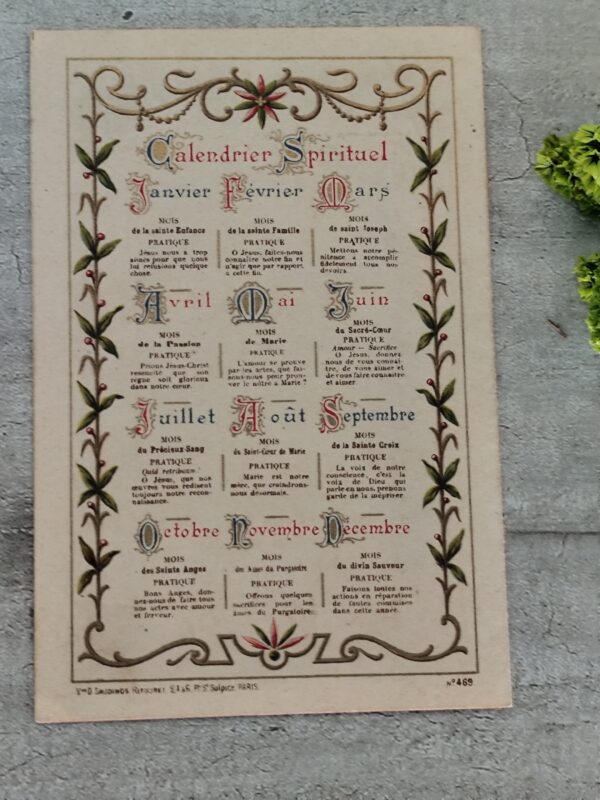 Calendrier Spirituel
Janvier Février Mars
MOIS
de la sainte Enfance
PRATIQUE
Jésus nous a trop
aimés pour que nous
lui refusions quelque
chose.
MOIS
de la sainte Famille
PRATIQUE
O Jésus, faites-nous
connaître notre fin et
n'agir que par rapport
à cette fin.
MOIS
de saint Joseph
PRATIQUE
Mettons notre pé-
nitence à accomplir
fidèlement tous nos
devoirs.
Avril Mai Juin
MOIS
de la Passion
PRATIQUE
Prions Jésus-Christ
ressuscité que son
règne soit glorieux
dans notre cœur.
MOIS
de Marie
PRATIQUE
L'amour se prouve
par les actes, que fai-
sons-nous pour prou-
ver le nôtre à Marie ?
MOIS
du Sacré-Cœur
PRATIQUE
Amour — Sacrifice
O Jésus, donnez-
nous de vous connaî-
tre, de vous aimer et
de vous faire connaître
et aimer.
Juillet Août Septembre
MOIS
du Précieux-Sang
PRATIQUE
Quid retribuam!
O Jésus, que nos
œuvres vous redisent
toujours notre recon-
naissance.
MOIS
du Saint-Cœur de Marie
PRATIQUE
Marie est notre
mère, que craindrons-
nous désormais.
MOIS
de la Sainte Croix
PRATIQUE
La voix de notre
conscience, c'est la
voix de Dieu qui
parle en nous, prenons
garde de la mépriser.
Octobre Novembre Décembre
MOIS
des Saints Anges
PRATIQUE
Bons Anges, don-
nez-nous de faire tous
nos actes avec amour
et ferveur.
MOIS
des Ames du Purgatoire
PRATIQUE
Offrons quelques
sacrifices pour les
âmes du Purgatoire.
MOIS
du divin Sauveur
PRATIQUE
Faisons toutes nos
actions en réparation
de fautes commises
dans cette année.
Pl. St Sulpice, PARIS.
N° 469